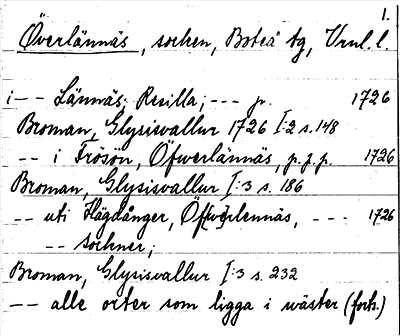 1.
Överlännäs, socken, Boteå tg, Vnl. l.
i -- Lännäs; Resilla; --- p. 1726
Broman, Glysisvallur 1726 I:2 s. 148
-- i Frösön, Öfwerlännäs, p.p.p. 1726
Broman, Glysisvallur I:3 s. 186
-- uti Hägdånger, Öf[w]erlennäs, --- 1726
-- sochner;
Broman, Glysisvallur I:3 s. 232
-- alle orter som ligga i wäster (forts.)